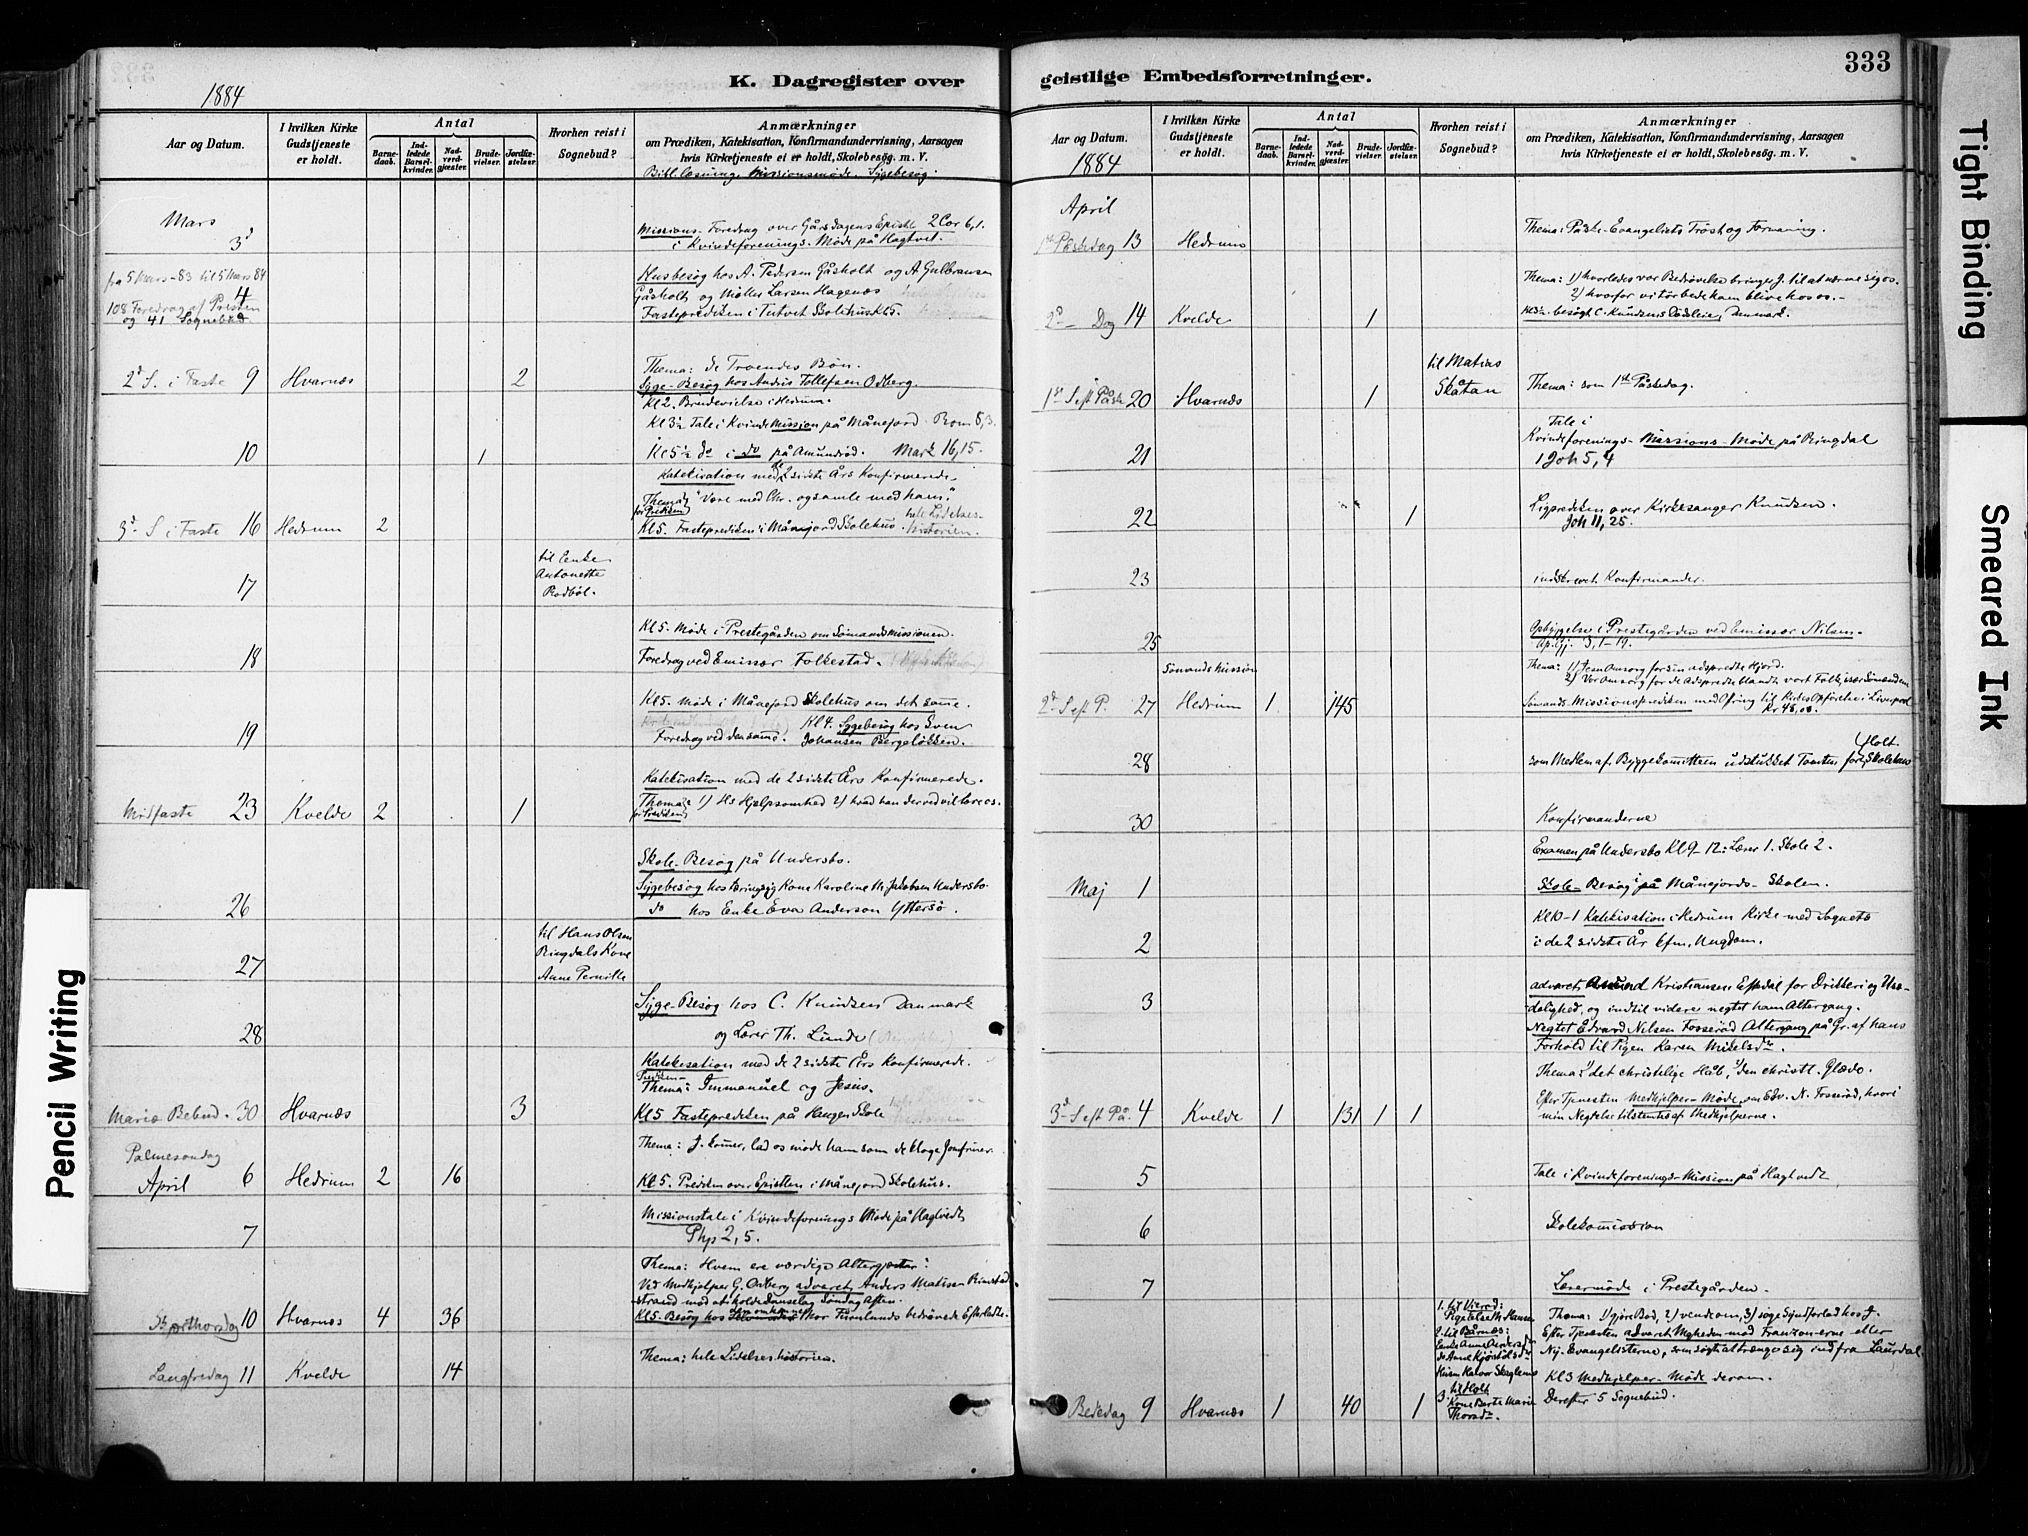 K. Dagregister over
1884
Aar og Datum.
I hvilken Kirke Gudstjeneste er holdt.
Antal
Barnedaab.
Indledede Barselkvinder.
Nadverdgjæster.
Brudevielser.
Jordfæstelser.
Hvorhen reist i Sognebud?
Anmærkninger
om Prædiken, Katekisation, Konfirmandundervisning, Aarsagen
hvis Kirketjeneste ei er holdt, Skolebesög. m. V.
Bibellæsning, Missionsmöde. Sygebesög.
Mars
3d
Missions-Foredrag over Gårsdagens Epistle 2 Cor 6,1.
i Kvindeforenings-Møde på Hagtvet.
fra 5 Mars-83 til 5 Mars 84
108 Foredrag af Presten
og 41 Sognebud
4
Husbesøg hos A. Pedersen Gåsholt og A Gulbransen
Gåsholt og Møller Larsen Hagenæs
Fasteprediken i Tutvet Skolehus Kl 5.
2d S. i Faste 9 Hvarnæs 2
Thema: de Troendes Bøn.
Syge-Besøg hos Andris Tollefsen Odberg.
10 1
Kl 2. Brudevielse i Hedrum.
Kl 3½ Tale i Kvindemission på Månejord. Rom 8,3.
Kl 5½ do i do på Amundrød. Mark 16,15.
3d S i Faste 16 Hedrum 2
Katekisation med de 2 sidste Års Konfirmerede.
Thema for Prediken "Være med Chr. og samle med ham."
Kl 5. Fasteprediken i Månejord Skolehus. hele Lidelseshistorien.
17
til Enke
Antonette
Rodbøl.
18
Kl 5. Møde i Prestegården om Sømandsmissionen.
Foredrag ved Emissær Folkestad.
19
Kl 5. Møde i Månejord Skolehus om det samme.
Foredrag ved densamme. Kl 4. Sygebesøg hos Sven
Johansen Bergeløkken.
Midfaste 23 Kvelde 2 1
Katekisation med de 2 sidste Års Konfirmerede.
Thema for Prediken 1) Hs Hjælpsomhed 2) hvad han derved vil lære os.
26
Skole-Besøg på Undersbo.
Sygebesøg hos tæringssyg Kone Karoline M. Jakobsen Undersbo
do hos Enke Eva Anderson Yttersø.
27
til Hans Olsen
Ringdals Kone
Anne Pernille
28
Syge-Besøg hos C. Knudsen Danmark
og Lærer Th. Lunde
Mariæ Bebud. 30 Hvarnæs 3
Katekisation med de 2 sidste Års Konfirmerede.
Prediken-
Thema: Immanuel og Jesus.
Kl 5 Fasteprediken på Haugen Skole
Palmesøndag
April 6 Hedrum 2 16
Thema: J. kommer, lad os møde ham som de kloge Jomfruer.
Kl 5. Prediken over Epistlen i Månejord Skolehus.
7
Missionstale i Kvindeforenings Møde på Hagtvedt
Php 2, 5.
Skjærthorsdag 10 Hvarnæs 4 36
Thema: Hvem ere værdige Altergjæster?
Ved Medhjelper G. Odberg advaret Anders Matisen Rimstad
strand mod at holde Danselag Søndag Aften.
Kl 5. Besøg hos omkomne Thor Furulunds bedrøvede Efterladte.
Langfredag 11 Kvelde 14
Thema: hele Lidelseshistorien.
geistlige Embedsforretninger.
333
Aar og Datum.
1884
I hvilken Kirke Gudstjeneste er holdt.
Antal
Barnedaab.
Indledede Barselkvinder.
Nadverdgjæster.
Brudevielser.
Jordfæstelser.
Hvorhen reist i Sognebud?
Anmærkninger
om Prædiken, Katekisation, Konfirmandundervisning, Aarsagen
hvis Kirketjeneste ei er holdt, Skolebesög. m. V.
April
1ste Påskedag 13 Hedrum
Thema: Påske-Evangeliets Trøst og Formaning.
2d Dag 14 Kvelde 1
Thema: 1) hvorledes vor Bedrøvelse bringer J. til at nærme sig os.
2) hvorfor vi tør bede ham blive hos os.
Kl 3½ besøgt C. Knudsens Dødsleie, Danmark.
1st S eft Påsk 20 Hvarnæs 1
til Matias
Skåtan
Thema: som 1ste Påskedag.
21
Tale i
Kvindeforenings-Missions-Møde på Ringdal
1 Joh 5, 4
22 1
Ligprediken over Kirkesanger Knudsen.
Joh 11, 25.
23
indskrevet Konfirmander.
25
Opbyggelse i Prestegården ved Emissær Nilsen.
Ap. Gj. 3, 1-19.
Sømandsmission
2d S eft P. 27 Hedrum 1 145
Thema: 1) Jesu Omsorg for sin adspredte Hjord.
2) Vor Omsorg for de Adspredte blandt vort Folk, især Sømændene
Sømands Missionsprediken med Ofring til Kirkes Opførelse i Liverpool
28
som Medlem af Byggekomiteen udstukket Tomten for Holt Skolehus
30
Konfirmanderne
Maj 1
Examen på Undersbo Kl 9-12: Lærer 1. Skole 2.
Skole-Besøg på Månejords-Skolen.
2
Kl 10-1 Katekisation i Hedrum Kirke med Sognets
i de 2 sidste År kfm. Ungdom.
3
advaret Kristiansen Eftedal for Drikkeri og Usædelighed, og indtil videre negtet ham Altergang.
Negtet Edvard Nilsen Fosserød Altergang på Gr. af hans
Forhold til Pigen Karen Mikelsdtr.
3d S eft På. 4 Kvelde 1 131 1 1
Thema: 1) det christelige Håb, 2) den christl. Glæde.
Efter Tjenesten Medhjelper-Møde om Edv. N. Fosserød, hvori
min Negtelse tilstemtes af Medhjelperne.
5
Tale i Kvindeforenings-Mission på Hagtvedt
6
Skolekommission
7
Lærermøde i Prestegården.
Bededag 9 Hvarnæs 1 40 1
1. til Vierød:
Pige Else M. Hansen
2. til Bårnæs:
Enke Anne Andersdtr
3. til Holt
Kone Berte Marie
Thorsdtr.
Thema: 1) gjøre Bod, 2) vende om, 3) søge Syndforlad hos J.
Efter Tjenesten advaret Mgheden mod Franzonerne eller
Ny-Evangelisterne, som søgte at trænge sig ind fra Laurdal.
Kl 3 Medhjelper-Møde derom.
Derefter 5 Sognebud.
Tight Binding
Smeared Ink
Pencil Writing